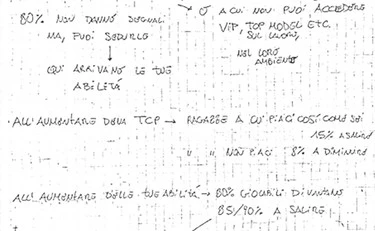 80% NON DANNO SEGNALI
MA, PUOI SEDURLE
QUI ARRIVANO LE TUE
ABILITÁ
O A CUI NON PUOI ACCEDERE
VIP, TOP MODEL ETC.
NEL LORO
AMBIENTE
ALL'AUMENTARE DELLA TCP → RAGAZZE A CUI PIACI COSÍ COME SEI
15% A SALIRE
" " NON PIACI 8% A DIMINUIRE
ALL'AUMENTARE DELLE TUE ABILITÁ → 80% GIOCABILI DIVENTANO
85/90% A SALIRE